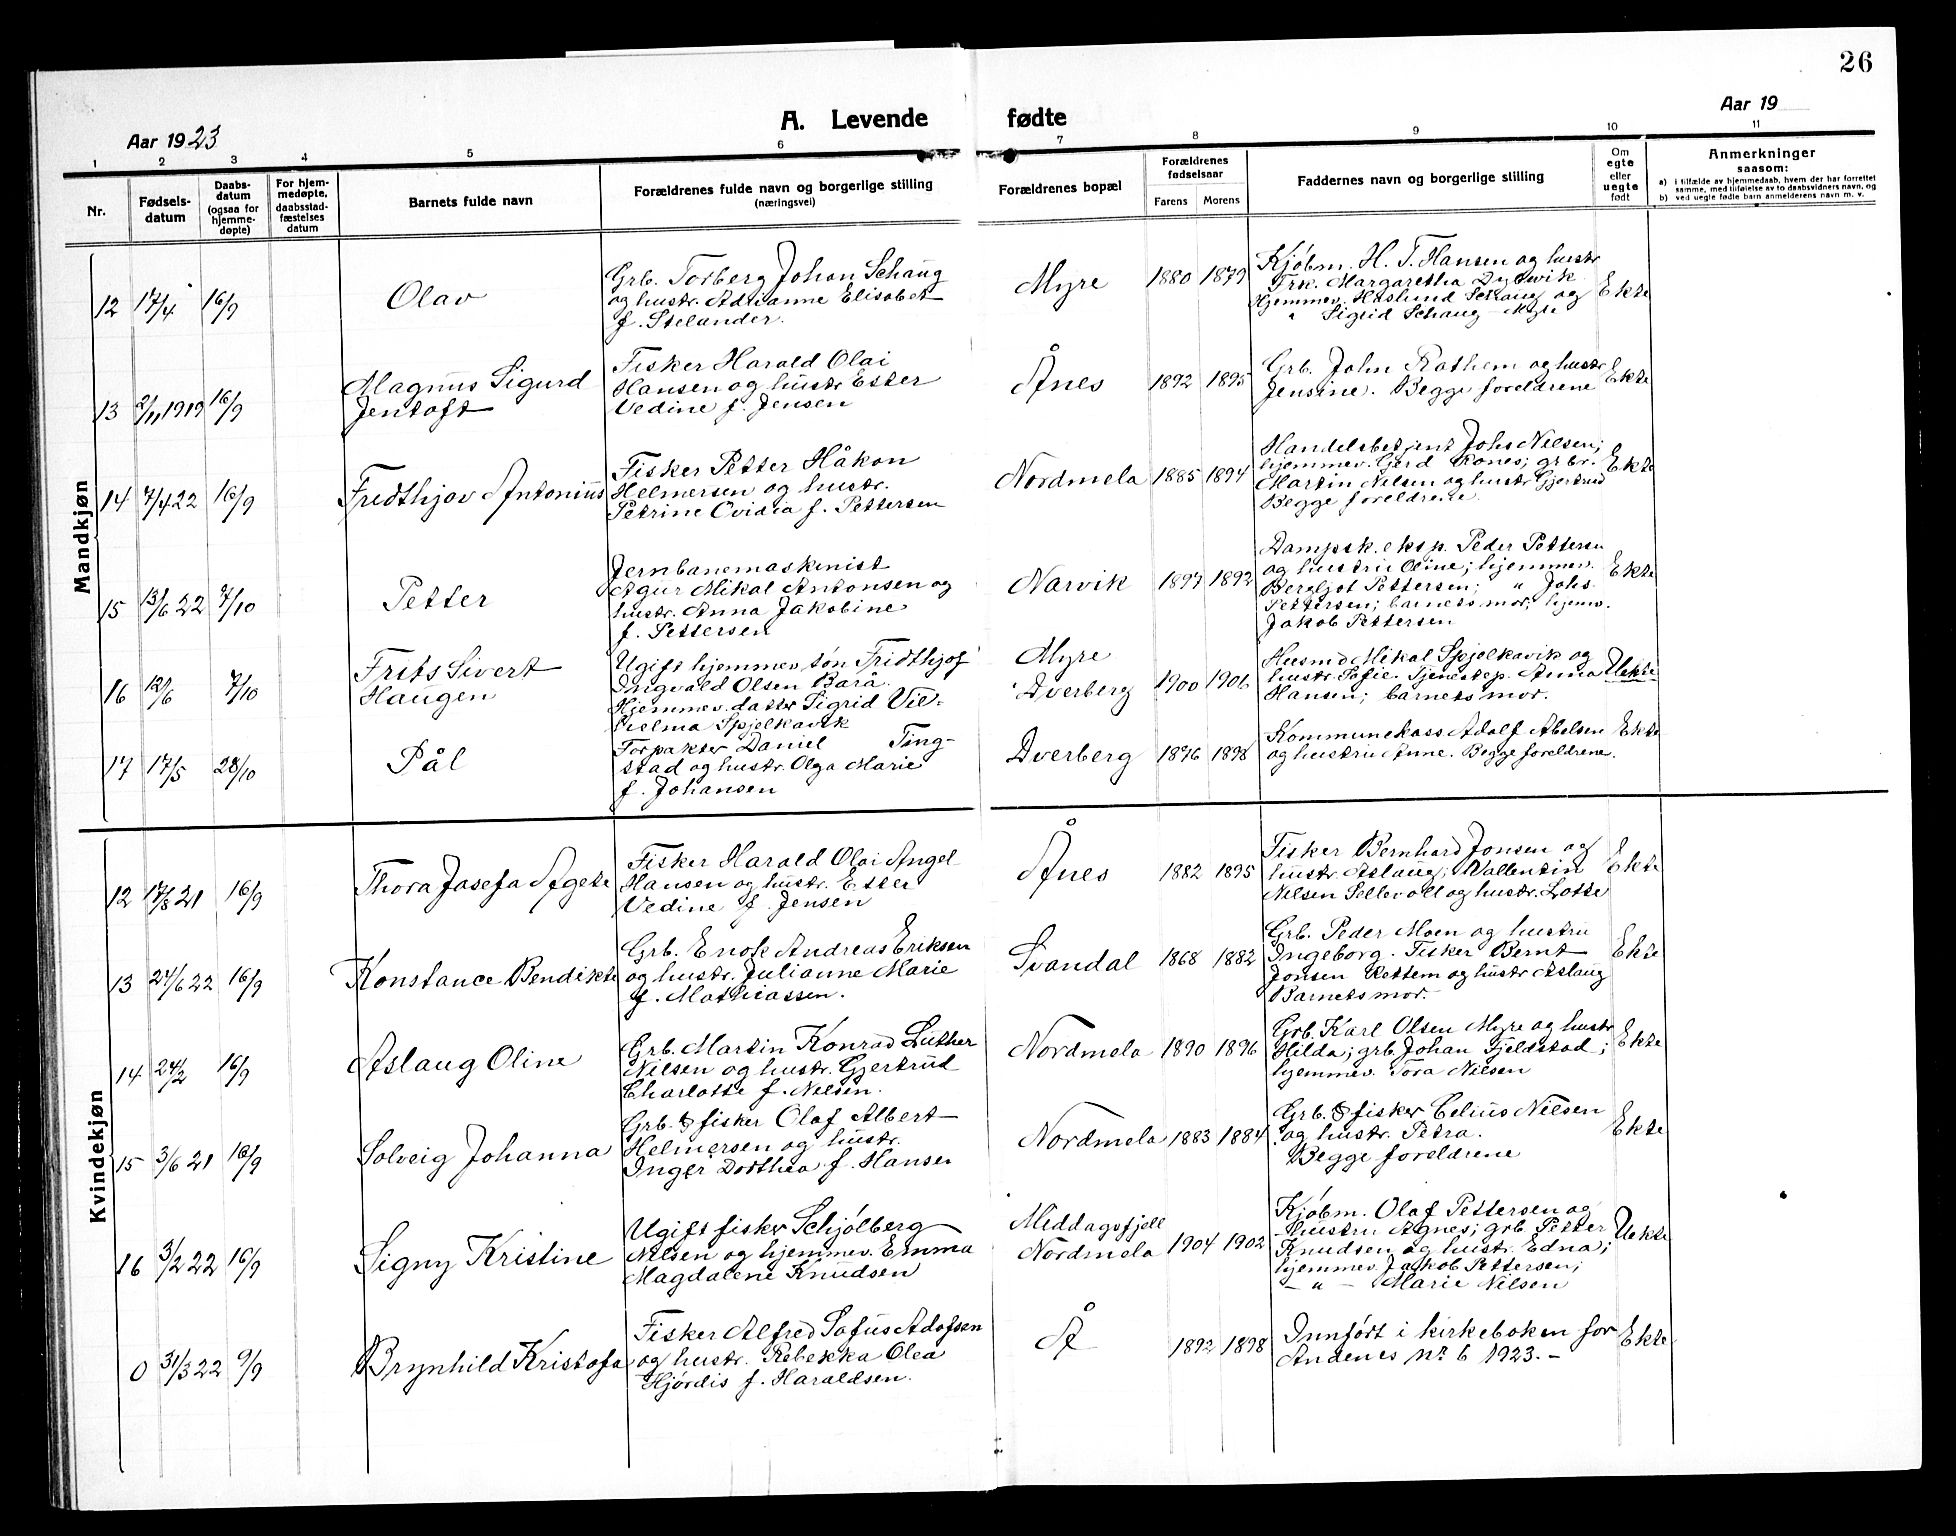 26
A. Levende fødte
Aar 1923
Aar 19
1 2 3 4 5 6 7 8 9 10 11
Nr.
Fødsels-
datum
Daabs-
datum
(ogsaa for
hjemme-
døpte)
For hjem-
medøpte,
daabsstad-
fæstelses
datum
Barnets fulde navn
Forældrenes fulde navn og borgerlige stilling
(næringsvei)
Forældrenes bopæl
Forældrenes
fødselsaar
Farens Morens
Faddernes navn og borgerlige stilling
Om
egte
eller
uegte
født
Anmerkninger
saasom:
a) i tilfælde av hjemmedaab, hvem der har forrettet
samme, med tilføielse av to daabsvidners navn, og
b) ved uegte fødte barn anmelderens navn m. v.
Mandkjøn
12 17/4 16/9
Olav
Grb. Torberg Johan Schaug
og hustr. Adrianne Elisabet
f. Stelander.
Myre
1880 1879
Kjøbm. H. T. Hansen og hustr
Frk. Margaretha Dybwik
Hjemmev. Haslund Schaug og
" Sigrid Schaug - Myre
Ekte
13 2/11 1919 16/9
Magnus Sigurd
Jentoft
Fisker Harald Olai
Hansen og hustr Ester
Vedine f. Jensen
Å
Ånes
1892 1895
Grb. John Rathem og hustr
Jensine. Begge foreldrene
Ekte
14 7/4 22 16/9
Fridthjov Antonius
Fisker Petter Håkon
Helmersen og hustr.
Petrine Ovidia f. Pettersen
Nordmela
1885 1894
Handelsbetjent Johs Nilsen;
hjemmev. Gerd Rones; grbr.
Martin Nilsen og hustr Gjertrud
Begge foreldrene.
Ekte
15 13/6 22 7/10
Petter
Jernbanemaskinist
Agur Mikal Antonsen og
hustr. Anna Jakobine
f. Pettersen
Narvik
1897 1892
Dampsk. eksp. Peder Pettersen
og hustru Oline; hjemmev.
Bergljot Pettersen; " Johs.
Pettersen; barnets mor; hjemv.
Jakob Pettersen
Ekte
16 12/6 7/10
Frits Sivert
Haugen
Ugift hjemmev. søn Fridthjof
Ingvald Olsen Barå
Hjemmev. datter Sigrid Vil-
helma Spjelkavik
Myre
Dverberg
1900 1906
Husmd Mikal Spjelkavik og
hustr. Sofie. Tjenestep. Anna
Hansen; barnets mor.
Uekte
17 17/5 28/10
Pål
Forpakter Daniel Ting-
stad og hustr. Olga Marie
f. Johansen
Dverberg
1896 1898
Kommunekass Adolf Abelsen
og hustru Anne. Begge foreldrene.
Ekte
Kvindekjøn
12 17/8 21 16/9
Thora Josefa Agete
Fisker Harald Olai Angel
Hansen og hustr. Ester
Vedine f. Jensen
Å
Ånes
1882 1895
Fisker Bernhard Jonsen og
hustr. Aslaug; Vallentin
Nilsen Sellevoll og hustr. Lotte
Ekte
13 24/6 22 16/9
Konstance Bendikte
Grb. Enok Andreas Eriksen
og hustr. Julianne Marie
f. Mathiassen.
Svandal
1868 1882
Grb. Peder Moen og hustru
Ingeborg. Fisker Bernt
Jonsen Rettem og hustr Aslaug
Barnets mor.
Ekte
14 24/2 16/9
Aslaug Oline
Grb. Martin Konrad Luther
Nilsen og hustr. Gjertrud
Charlotte f. Nilsen.
Nordmela
1890 1896
Grb. Karl Olsen Myre og hustr
Hilda; grb. Johan Fjeldstad;
hjemmev. Tora Nilsen
Ekte
15 3/6 21 16/9
Solveig Johanna
Grb. & fisker Olaf Albert
Helmersen og hustr.
Inger Dorthea f. Hansen
Nordmela
1883 1884
Grb. & fisker Celius Nilsen
og hustr. Petra.
Begge foreldrene
Ekte
16 3/2 22 16/9
Signy Kristine
Ugift fisker Schjølberg
Nilsen og hjemmev. Emma
Magdalene Knudsen
Middagsfjell
Nordmela
1904 1902
Kjøbm. Olaf Pettersen og
hustru Agnes; grb Petter
Knudsen og hustr. Edna;
hjemmev. Jakob Pettersen;
- " - Marie Nilsen
Uekte
0 31/3 22 9/9
Brynhild Kristofa
Fisker Alfred Sofus Adofsen
og hustr. Rebekka Olea
Hjørdis f. Haraldsen.
Å
1892 1898
Innført i kirkeboken for
Andenes nr 6 1923. -
Ekte